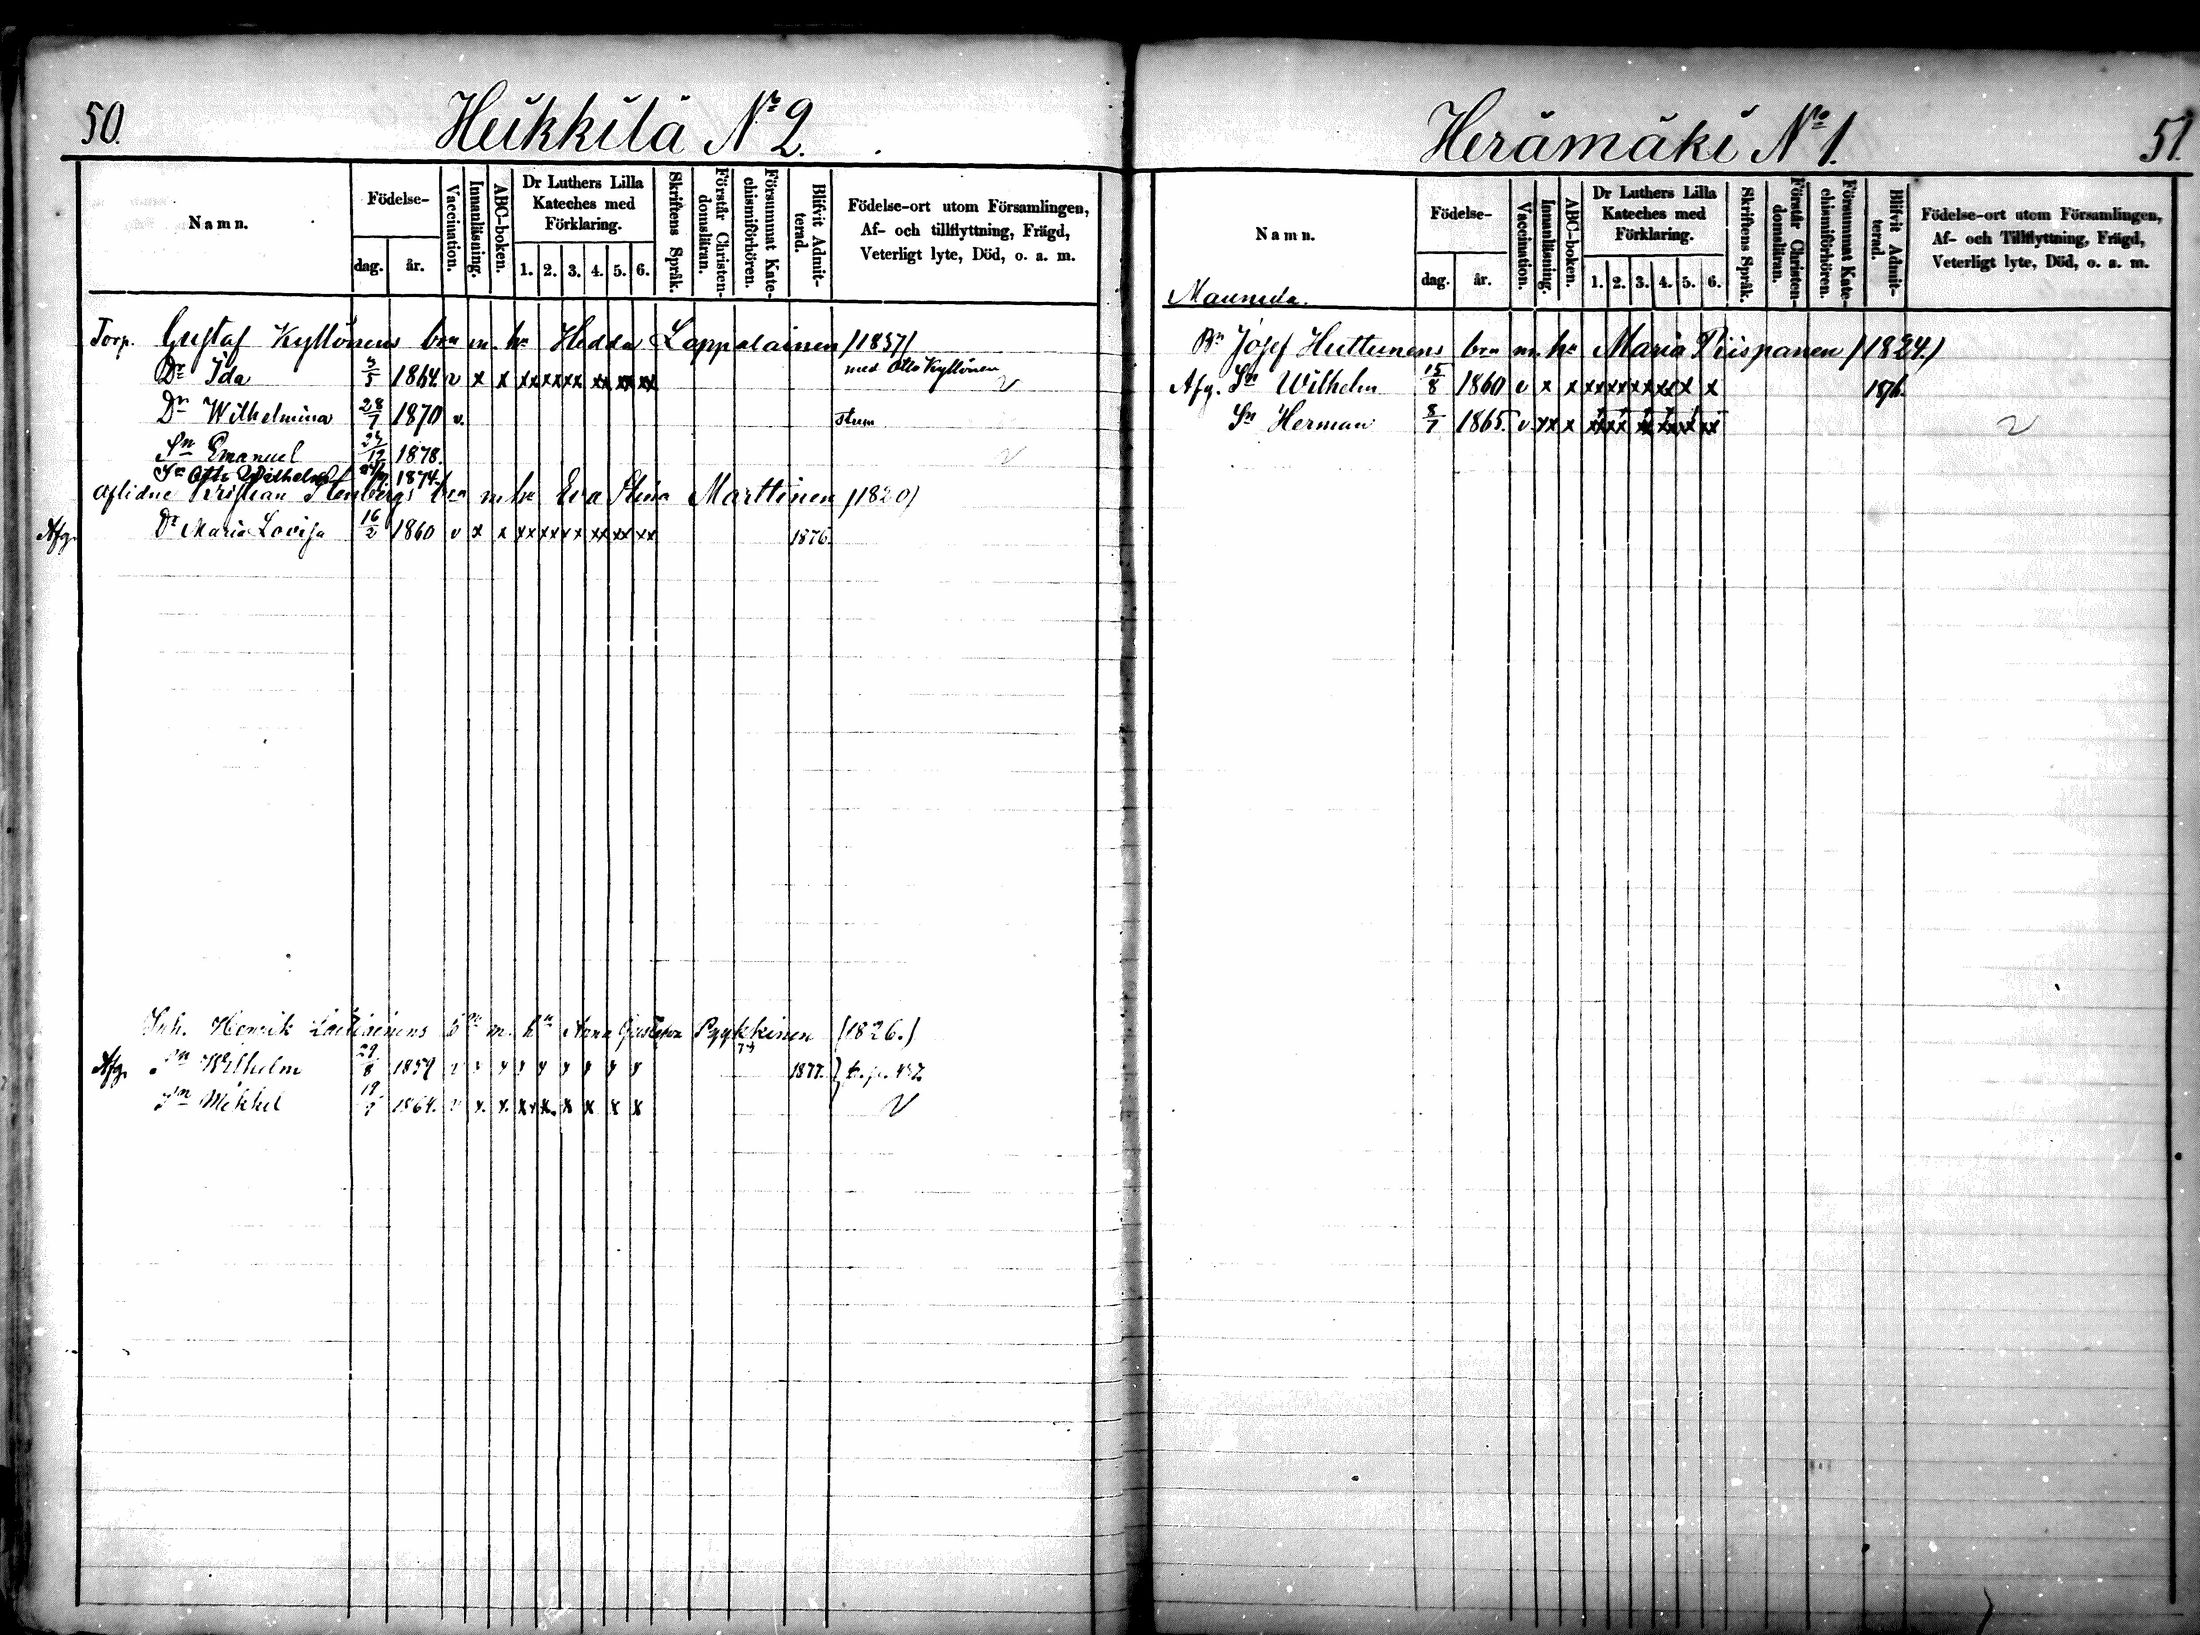 50.
Heikkilä No 2.
Namn.
Födelse-
dag.
år.
Vaccination.
Innanläsning.
ABC-boken.
Dr Luthers Lilla
Kateches med
Förklaring.
1. 2. 3. 4. 5. 6.
Skriftens Språk.
Förstår Christen-
domsläran.
Försummat Kate-
chismiförhören.
Blifvit Admit-
terad.
Födelse-ort utom Församlingen,
Af- och tillflyttning, Frägd,
Veterligt lyte, Död, o. a. m.
Torp. Gustaf Kyllönens brn m. hu Hedda Lappalainen /1837/
Dr Ida 3/5 1864 v x x xx xx xx xx xx xx med Otto Kyllönen
Dr Wilhelmina 28/7 1870 v. stum
Sn Emanuel 27/12 1878.
Sn Otto Wilhelm 1874.
Aflidne Kristian Stenbergs brn m. hu Eva Stina Marttinen /1820/
Afg. Dr Maria Lovisa 16/2 1860 v x x xx xx xx xx xx xx 1876.
Inh. Henrik bn m. hu Anna Gustava Pyykkinen (1826.)
Afg. Sn Wilhelm 29/8 1859 v x x x x x x x x 1877.
Sn Mikkel 1864. v x. x. xx x. x x x x
Herämäki No 1.
51.
Namn.
Födelse-
dag.
år.
Vaccination.
Innanläsning.
ABC-boken.
Dr Luthers Lilla
Kateches med
Förklaring.
1. 2. 3. 4. 5. 6.
Skriftens Språk.
Förstår Christen-
domsläran.
Försummat Kate-
chismiförhören.
Blifvit Admit-
terad.
Födelse-ort utom Församlingen,
Af- och Tillflyttning, Frägd,
Veterligt lyte, Död, o. a. m.
Maunula.
Bn Josef Huttunens brn m. hu Maria Piispanen /1824./
Afg. Sn Wilhelm 15/8 1860 v x x xx xx xx xx x x 1876.
Sn Herman 8/7 1865. v xx x xx xx xx xx x xx